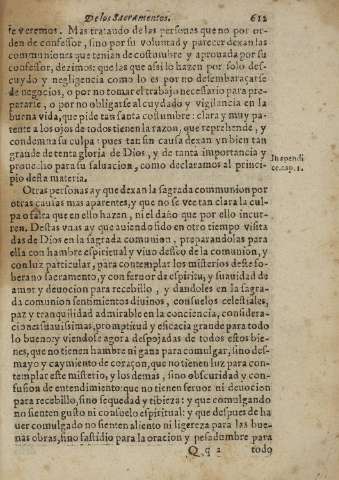 De los Sacramentos. 612
se veremos. Mas tratando de las personas que no por or-
den de confessor, sino por su voluntad y parecer dexan las
communiones que tenian de costumbre y aprouada por su
confessor, dezimos: que las que assi lo hazen por solo des-
cuydo y negligencia como lo es por no desembaraçarse
de negocios, o por no tomar el trabajo necessario para pre-
pararse, o por no obligarse al cuydado y vigilancia en la
buena vida, que pide tan santa costumbre: clara y muy pa-
tente a los ojos de todos tienen la razon, que reprehende, y
condemna su culpa: pues tan sin causa dexan vn bien tan
grande de tanta gloria de Dios, y de tanta importancia y
prouecho para su saluacion, como declaramos al princi-
pio desta materia.
In apendi
ce. cap. 1.
Otras personas ay que dexan la sagrada communion por
otras causas mas aparentes, y que no se vee tan clara la cul-
pa o falta que en ello hazen, ni el daño que por ello incur-
ren. Destas vnas ay que auiendo sido en otro tiempo visita
das de Dios en la sagrada comunion, preparandolas para
ella con hambre espiritual y viuo desseo de la comunion, y
con luz particular, para contemplar los misterios deste so-
berano Sacramento, y con feruor de espiritu, y suauidad de
amor y deuocion para recebillo, y dandoles en la sagra-
da comunion sentimientos diuinos, consuelos celestiales,
paz y tranquilidad admirable en la conciencia, considera-
ciones suauissimas, promptitud y eficacia grande para todo
lo bueno: y viendose agora despojadas de todos estos bie-
nes, que no tienen hambre ni gana para comulgar, sino des-
mayo y caymiento de coraçon, que no tienen luz para con-
templar este misterio, y los demas, sino obscuridad y con-
fusion de entendimiento: que no tienen feruor ni deuocion
para recebillo, sino sequedad y tibieza: y que comulgando
no sienten gusto ni consuelo espiritual: y que despues de ha
uer comulgado no sienten aliento ni ligereza para las bue-
nas obras, sino fastidio para la oracion y pesadumbre para
Qqq 2 todo